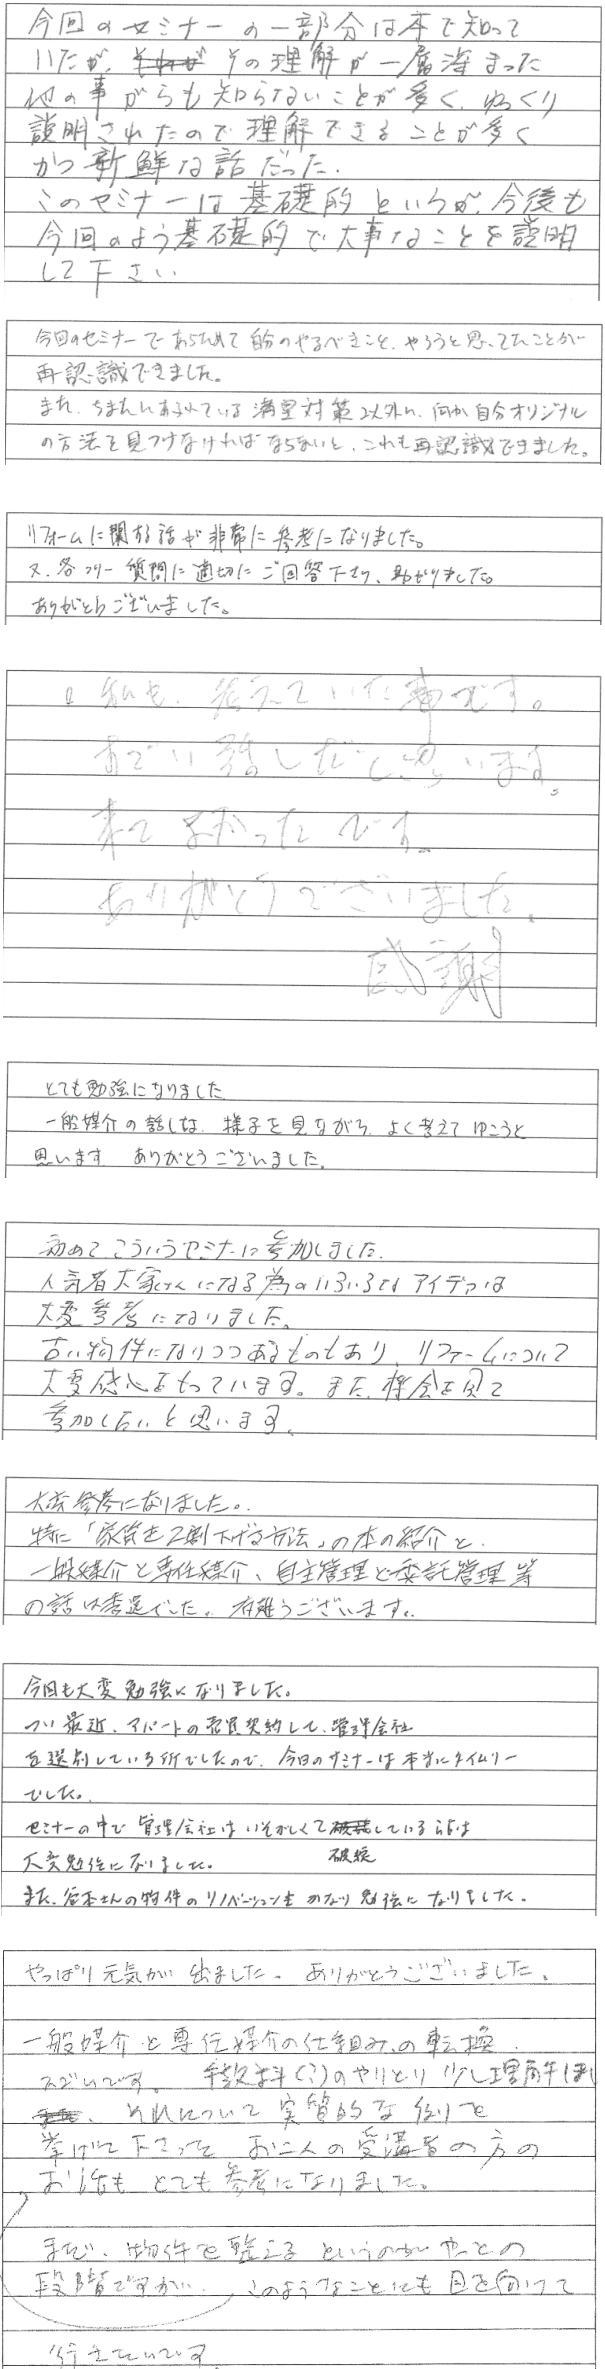 今回のセミナーの一部分は本で知って
いたが、その理解が一層深まった
他の事がらも知らないことが多く、ゆっくり
説明されたので理解できることが多く
かつ新鮮な話だった。
このセミナーは基礎的というが、今後も
今回のよう基礎的で大事なことを説明
して下さい
今回のセミナーであらためて自分のやるべきこと、やろうと思ってたことが
再認識できました。
また、ちまたにあふれている満室対策以外に、何か自分オリジナル
の方法を見つけなければならないと、これも再認識できました。
リフォームに関する話が非常に参考になりました。
又、各フリー質問に適切にご回答下さり、助かりました。
ありがとうございました。
私も、考えていた事です。
すごい話しだと思います。
来てよかったです。
ありがとうございました。
感謝
とても勉強になりました
一般媒介の話しは、様子を見ながら、よく考えてゆこうと
思います ありがとうございました。
初めてこういうセミナーに参加しました。
人気者大家さんになる為のいろいろなアイデアは
大変参考になりました。
古い物件になりつつあるものもあり、リフォームについて
大変感心をもっています。また、機会を見て
参加したいと思います。
大変参考になりました。
特に「家賃を2割下げる方法」の本の紹介と、
一般媒介と専任媒介、自主管理と委託管理等
の話は秀逸でした。有難うございます。
今回も大変勉強になりました。
つい最近、アパートの売買契約して、管理会社
を選別している所でしたので、今日のセミナーは本当にタイムリー
でした。
セミナーの中で管理会社はいそがしくて破綻している話は
大変勉強になりました。
また、谷本さんの物件のリノベーションもかなり勉強になりました。
やっぱり元気が出ました。ありがとうございました。
一般媒介と専任媒介の仕組みの転換、
スゴいです。手数料(?)のやりとり少し理解
、それについて実質的な例を
挙げて下さったお二人の受講者の方の
お話もとても参考になりました。
まだ、物件を整えるというのがやっとの
段階ですが、このようなことにも目を向けて
行きたいです。